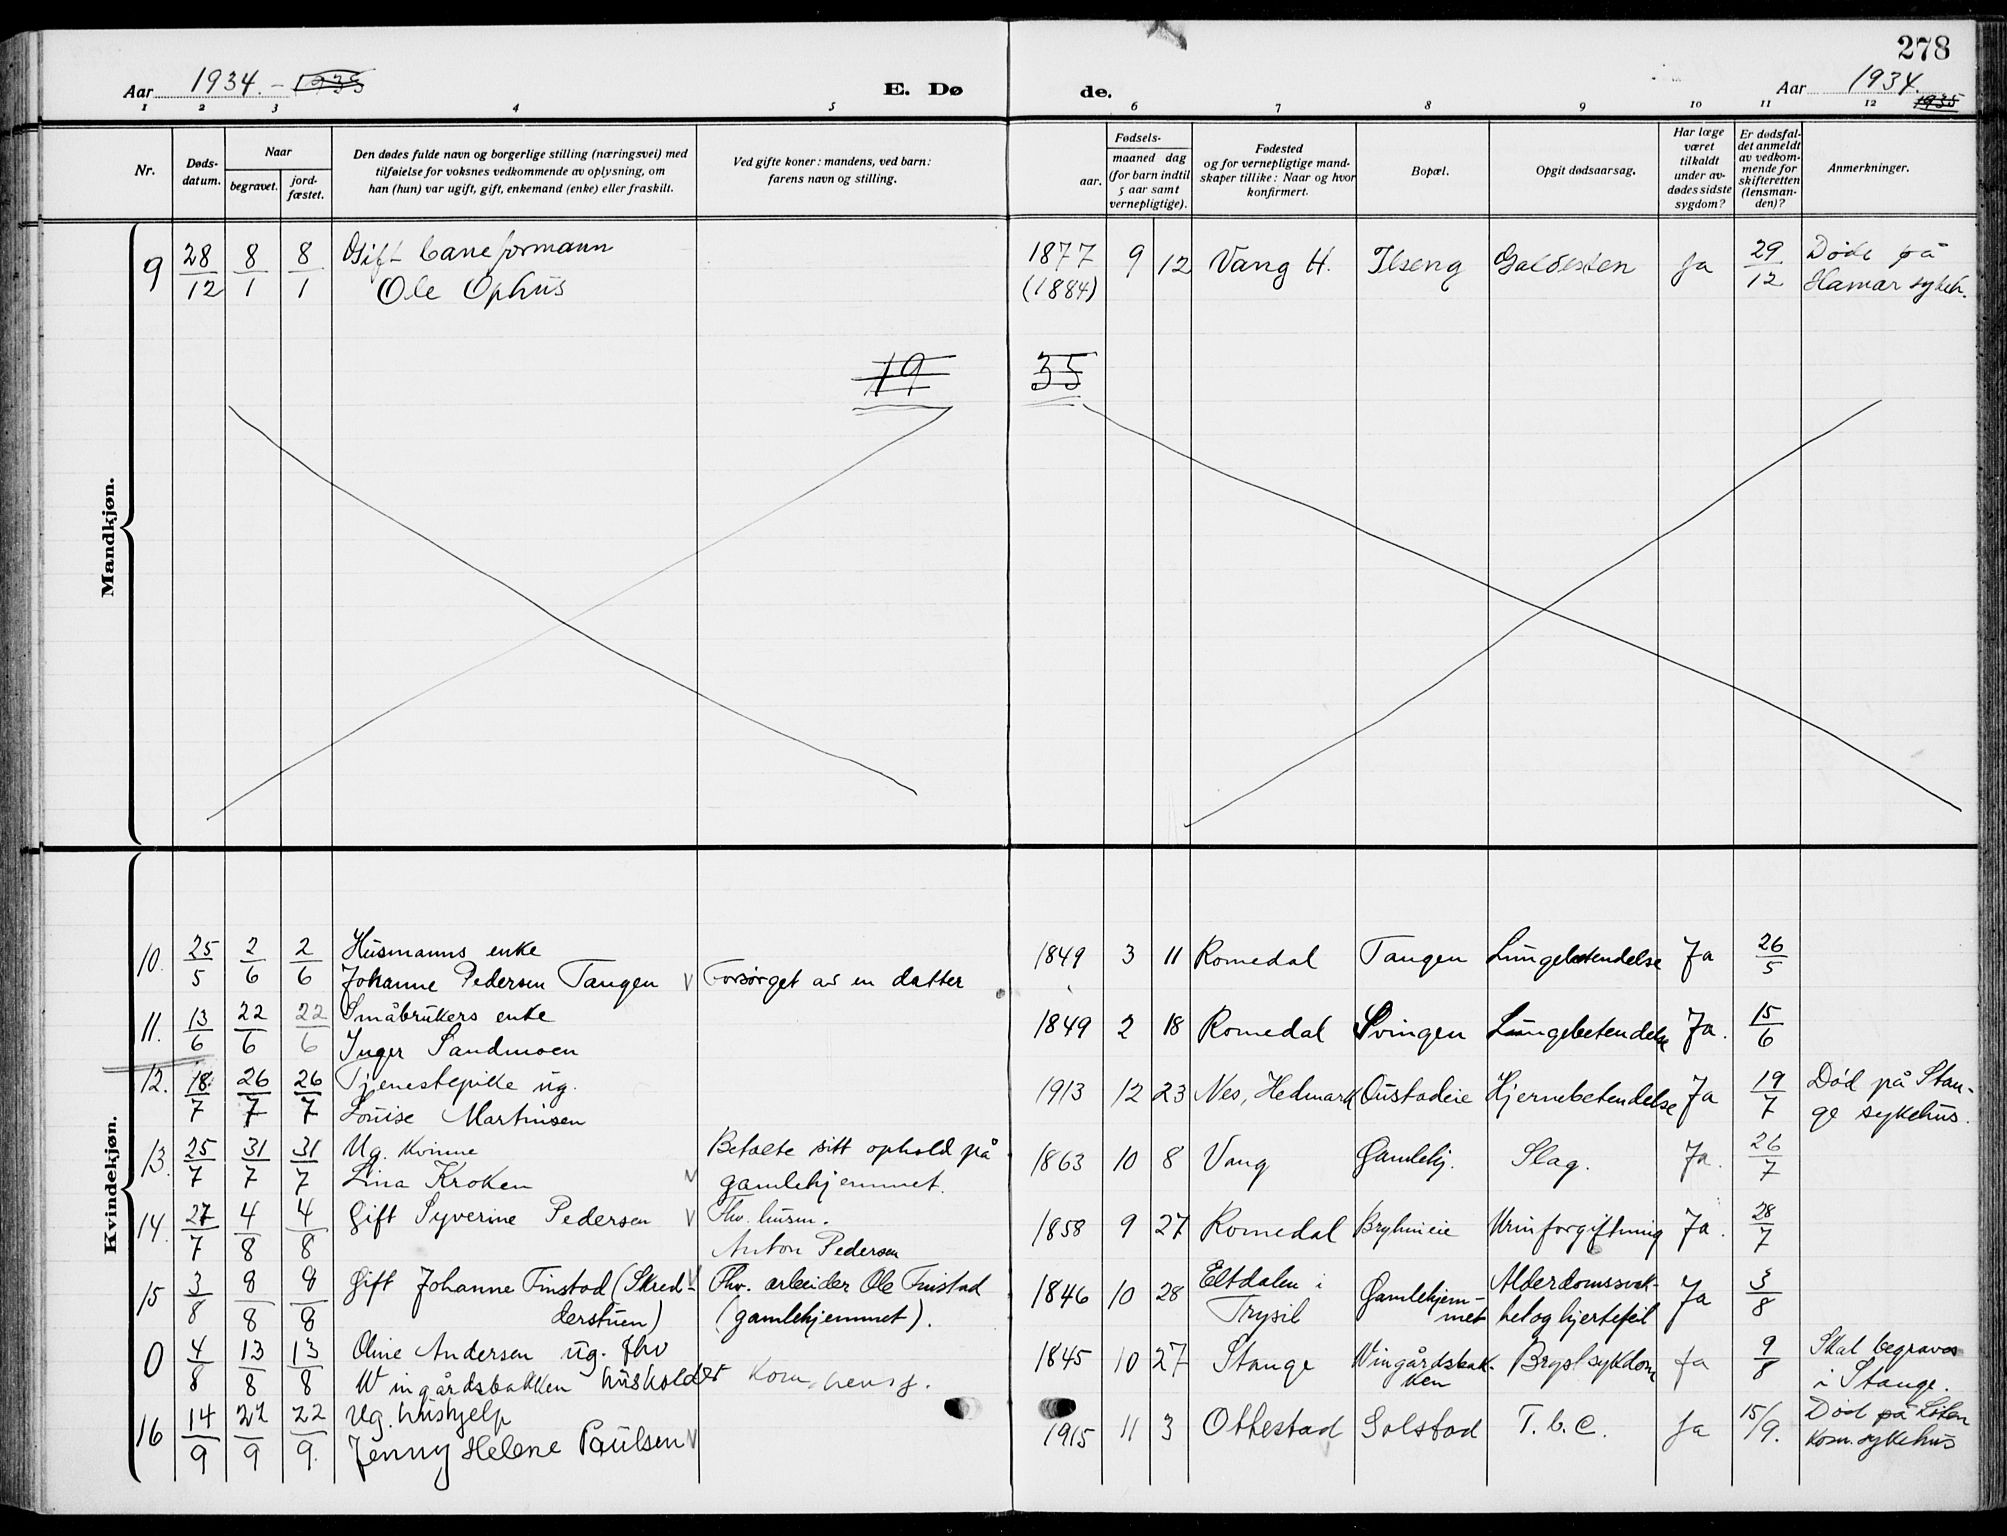 278
Aar 1934. - 1935
E. Dø
de.
Aar 1934.
1935
1 2 3 4 5 6 7 8 9 10 11 12
Nr.
Døds-
datum.
Naar
begravet.
jord-
fæstet.
Den dødes fulde navn og borgerlige stilling (næringsvei) med
tilføielse for voksnes vedkommende av oplysning, om
han (hun) var ugift, gift, enkemand (enke) eller fraskilt.
Ved gifte koner: mandens, ved barn:
farens navn og stilling.
Fødsels-
aar.
maaned dag
(for barn indtil
5 aar samt
vernepligtige).
Fødested
og for vernepligtige mand-
skaper tillike: Naar og hvor
konfirmert.
Bopæl.
Opgit dødsaarsag.
Har læge
været
tilkaldt
under av-
dødes sidste
sygdom?
Er dødsfal-
det anmeldt
av vedkom-
mende for
skifteretten
(lensman-
den)?
Anmerkninger.
Mandkjøn.
9 28/12 8/1 8/1 Gift baneformann
Ole Ophus
1877 9 12 Vang H. Ilseng Galdesten Ja 29/12 Døde på
(1884) Hamar sykeh.
19 35
Kvindekjøn.
10. 25/5 2/6 2/6 Husmanns enke
Johanne Pedersen Tangen v Forsørget av en datter
1849 3 11 Romedal Tangen Lungebetendelse Ja 26/5
11. 13/6 22/6 22/6 Småbrukers enke
Inger Sandmoen
1849 2 18 Romedal Svingen Lungebetendelse Ja. 15/6
12. 18/7 26/7 26/7 Tjenestepike ug.
Louise Martinsen
1913 12 23 Nes, Hedmark Oustadeie Hjernebetendelse Ja 19/7 Død på Stan-
ge sykehus.
13. 25/7 31/7 31/7 Ug. kvinne Betalte sitt ophold på
Lina Kroken v gamlehjemmet.
1863 10 8 Vang Gamlehj. Slag. Ja. 26/7
14. 27/7 4/8 4/8 Gift Syverine Pedersen v Fhv. husm.
Anton Pedersen
1858 9 27 Romedal Bryhnieie Urinforgiftning Ja. 28/7
15 3/8 8/8 8/8 Gift Johanne Finstad (Skred- v Fhv. arbeider Ole Finstad
derstuen) (gamlehjemmet).
1846 10 28 Eltdalen i Gamlehjem- Alderdomssvak- Ja 3/8
Trysil met het og hjertefeil
0 4/8 13/8 13/8 Oline Andersen ug. fhv
Wingårdsbakken husholder
1845 10 27 Stange Wingårdsbak- Brystsykdom Ja 9/8 Skal begraves
ken i Stange.
16 14/9 22/9 22/9. Ug. hushjelp
Jenny Helene Paulsen v
1915 11 3 Ottestad Solstad T.b.c. Ja 15/9. Død på Løten
Kom. sykehus